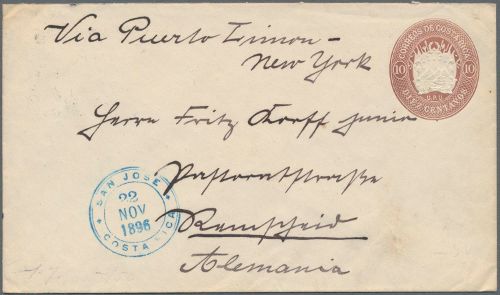 Via Puerto Limon -
New York
CORREOS DE COSTA RICA
10 10
U.P.U
DIEZ CENTAVOS
Herrn Fritz Korff junior
Pastoratstraße
Remscheid
Alemania
SAN JOSE
22
NOV
1896
COSTA RICA